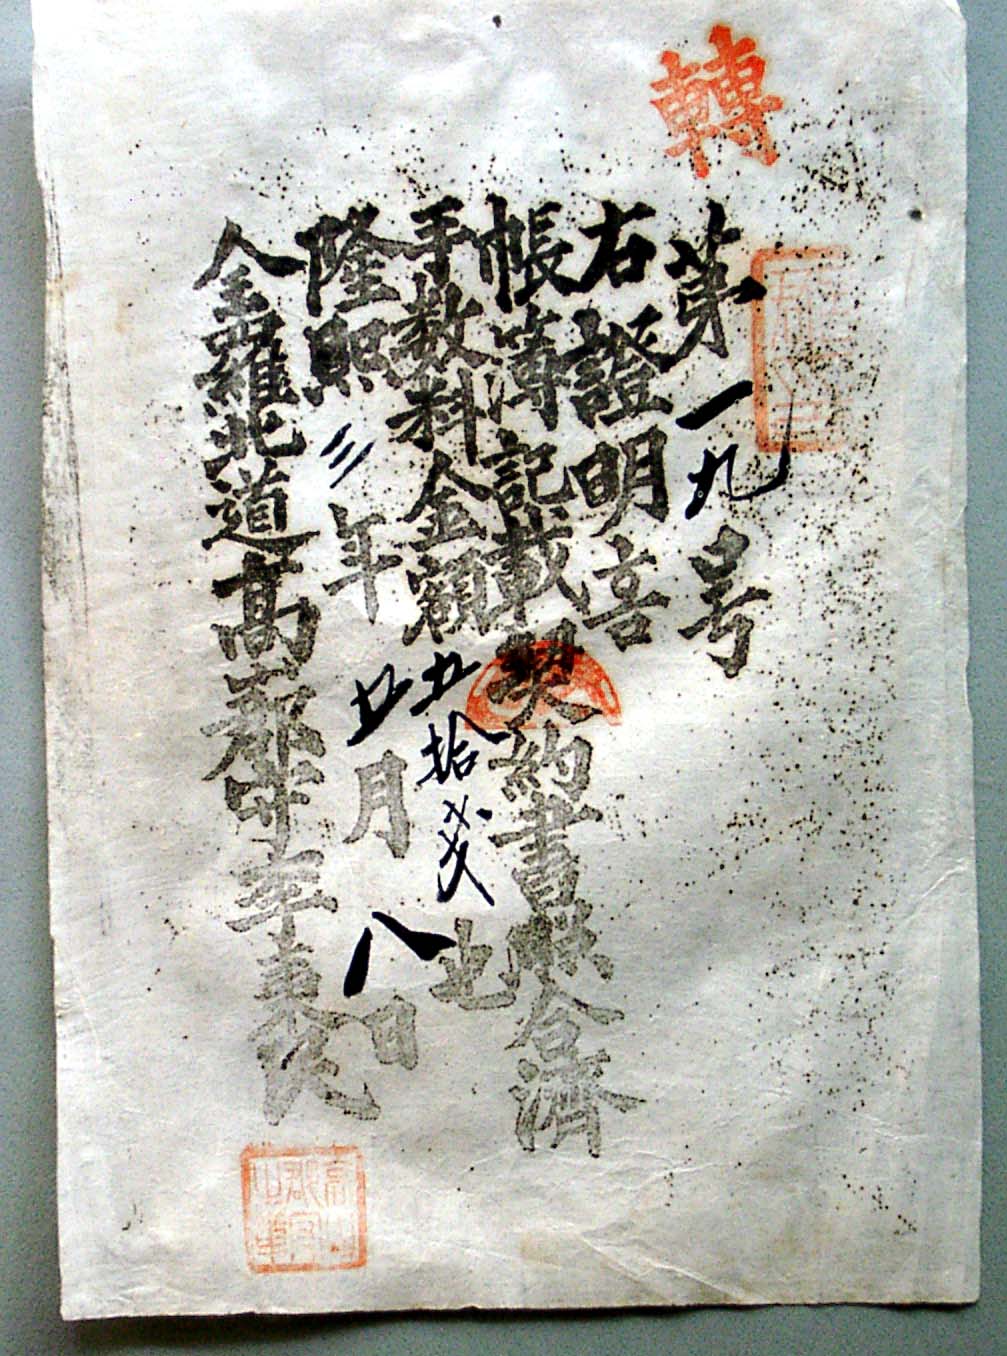 轉
第一九号
右證明
帳簿記載契約書照合濟
手数料金額五拾弐也
隆熙三年五月八日
全羅北道高